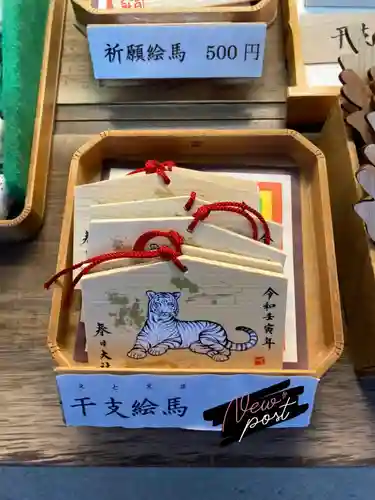 祈願絵馬 500円
令和壬寅年
春日大社
干支絵馬
New
post